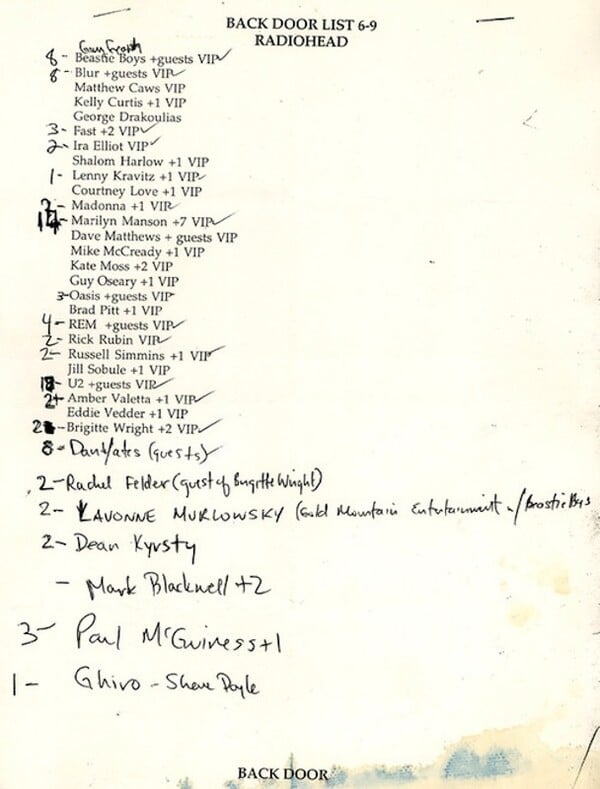 BACK DOOR LIST 6-9
RADIOHEAD
8- Beastie Boys +guests VIP✓
8- Blur +guests VIP✓
Matthew Caws VIP
Kelly Curtis +1 VIP
George Drakoulias
3- Fast +2 VIP✓
2- Ira Elliot VIP✓
Shalom Harlow +1 VIP
1- Lenny Kravitz +1 VIP✓
Courtney Love +1 VIP
Madonna +1 VIP✓
Marilyn Manson +7 VIP✓
Dave Matthews + guests VIP
Mike McCready +1 VIP
Kate Moss +2 VIP
Guy Oseary +1 VIP
3- Oasis +guests VIP✓
Brad Pitt +1 VIP
4- REM +guests VIP✓
2- Rick Rubin VIP✓
2- Russell Simmins +1 VIP✓
Jill Sobule +1 VIP
U2 +guests VIP✓
Amber Valetta +1 VIP✓
Eddie Vedder +1 VIP
Brigitte Wright +2 VIP✓
8- (guests)✓
2- Rachel Felder (guest of Brigitte Wright)
2- LAVONNE MURLOWSKY (Gold Mountain Entertainment w/Beastie Bys
2- Dean Kyrsty
- Mark Blackwell +2
3- Paul McGuiness +1
1- Ghiro - Shane Doyle
BACK DOOR